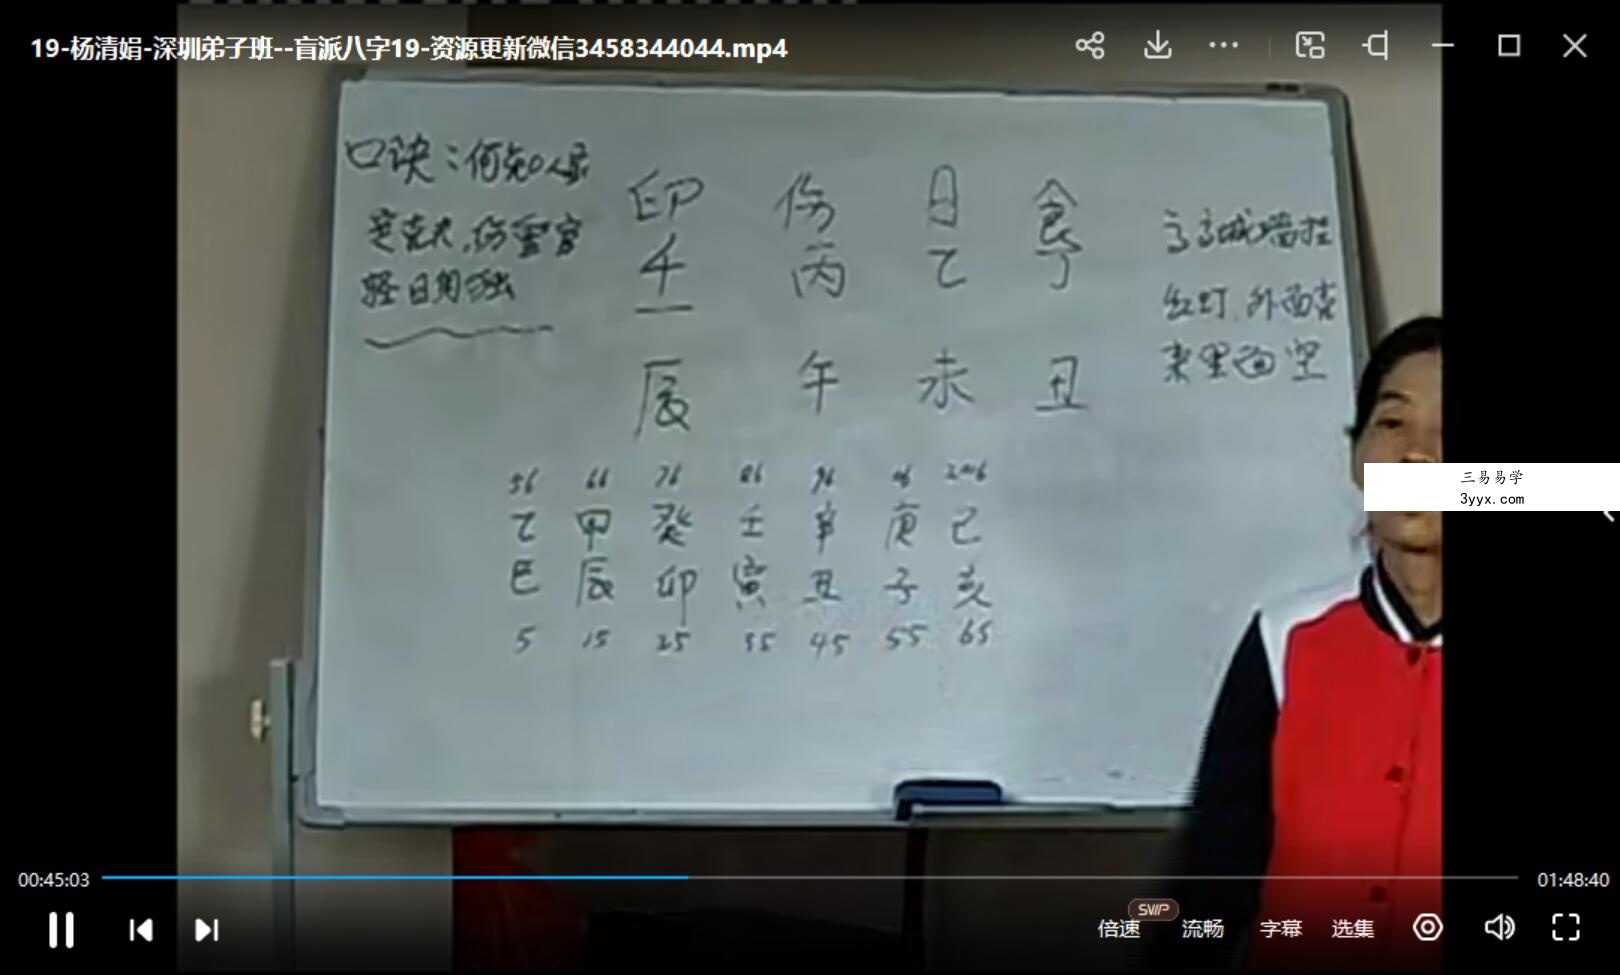 19-杨清娟-深圳弟子班--盲派八字19-资源更新微信3458344044.mp4
口诀：何知人家
克夫，伤重官
轻日月独
印 伤 日 食
壬 丙 乙 丁
辰 午 未 丑
高高城墙挂
红灯，外面克
来里面空
56 66 76 86 96 06 2016
乙 甲 癸 壬 辛 庚 己
巳 辰 卯 寅 丑 子 亥
5 15 25 35 45 55 65
三易易学
3yyx.com
00:45:03
01:48:40
SVIP
倍速 流畅 字幕 选集